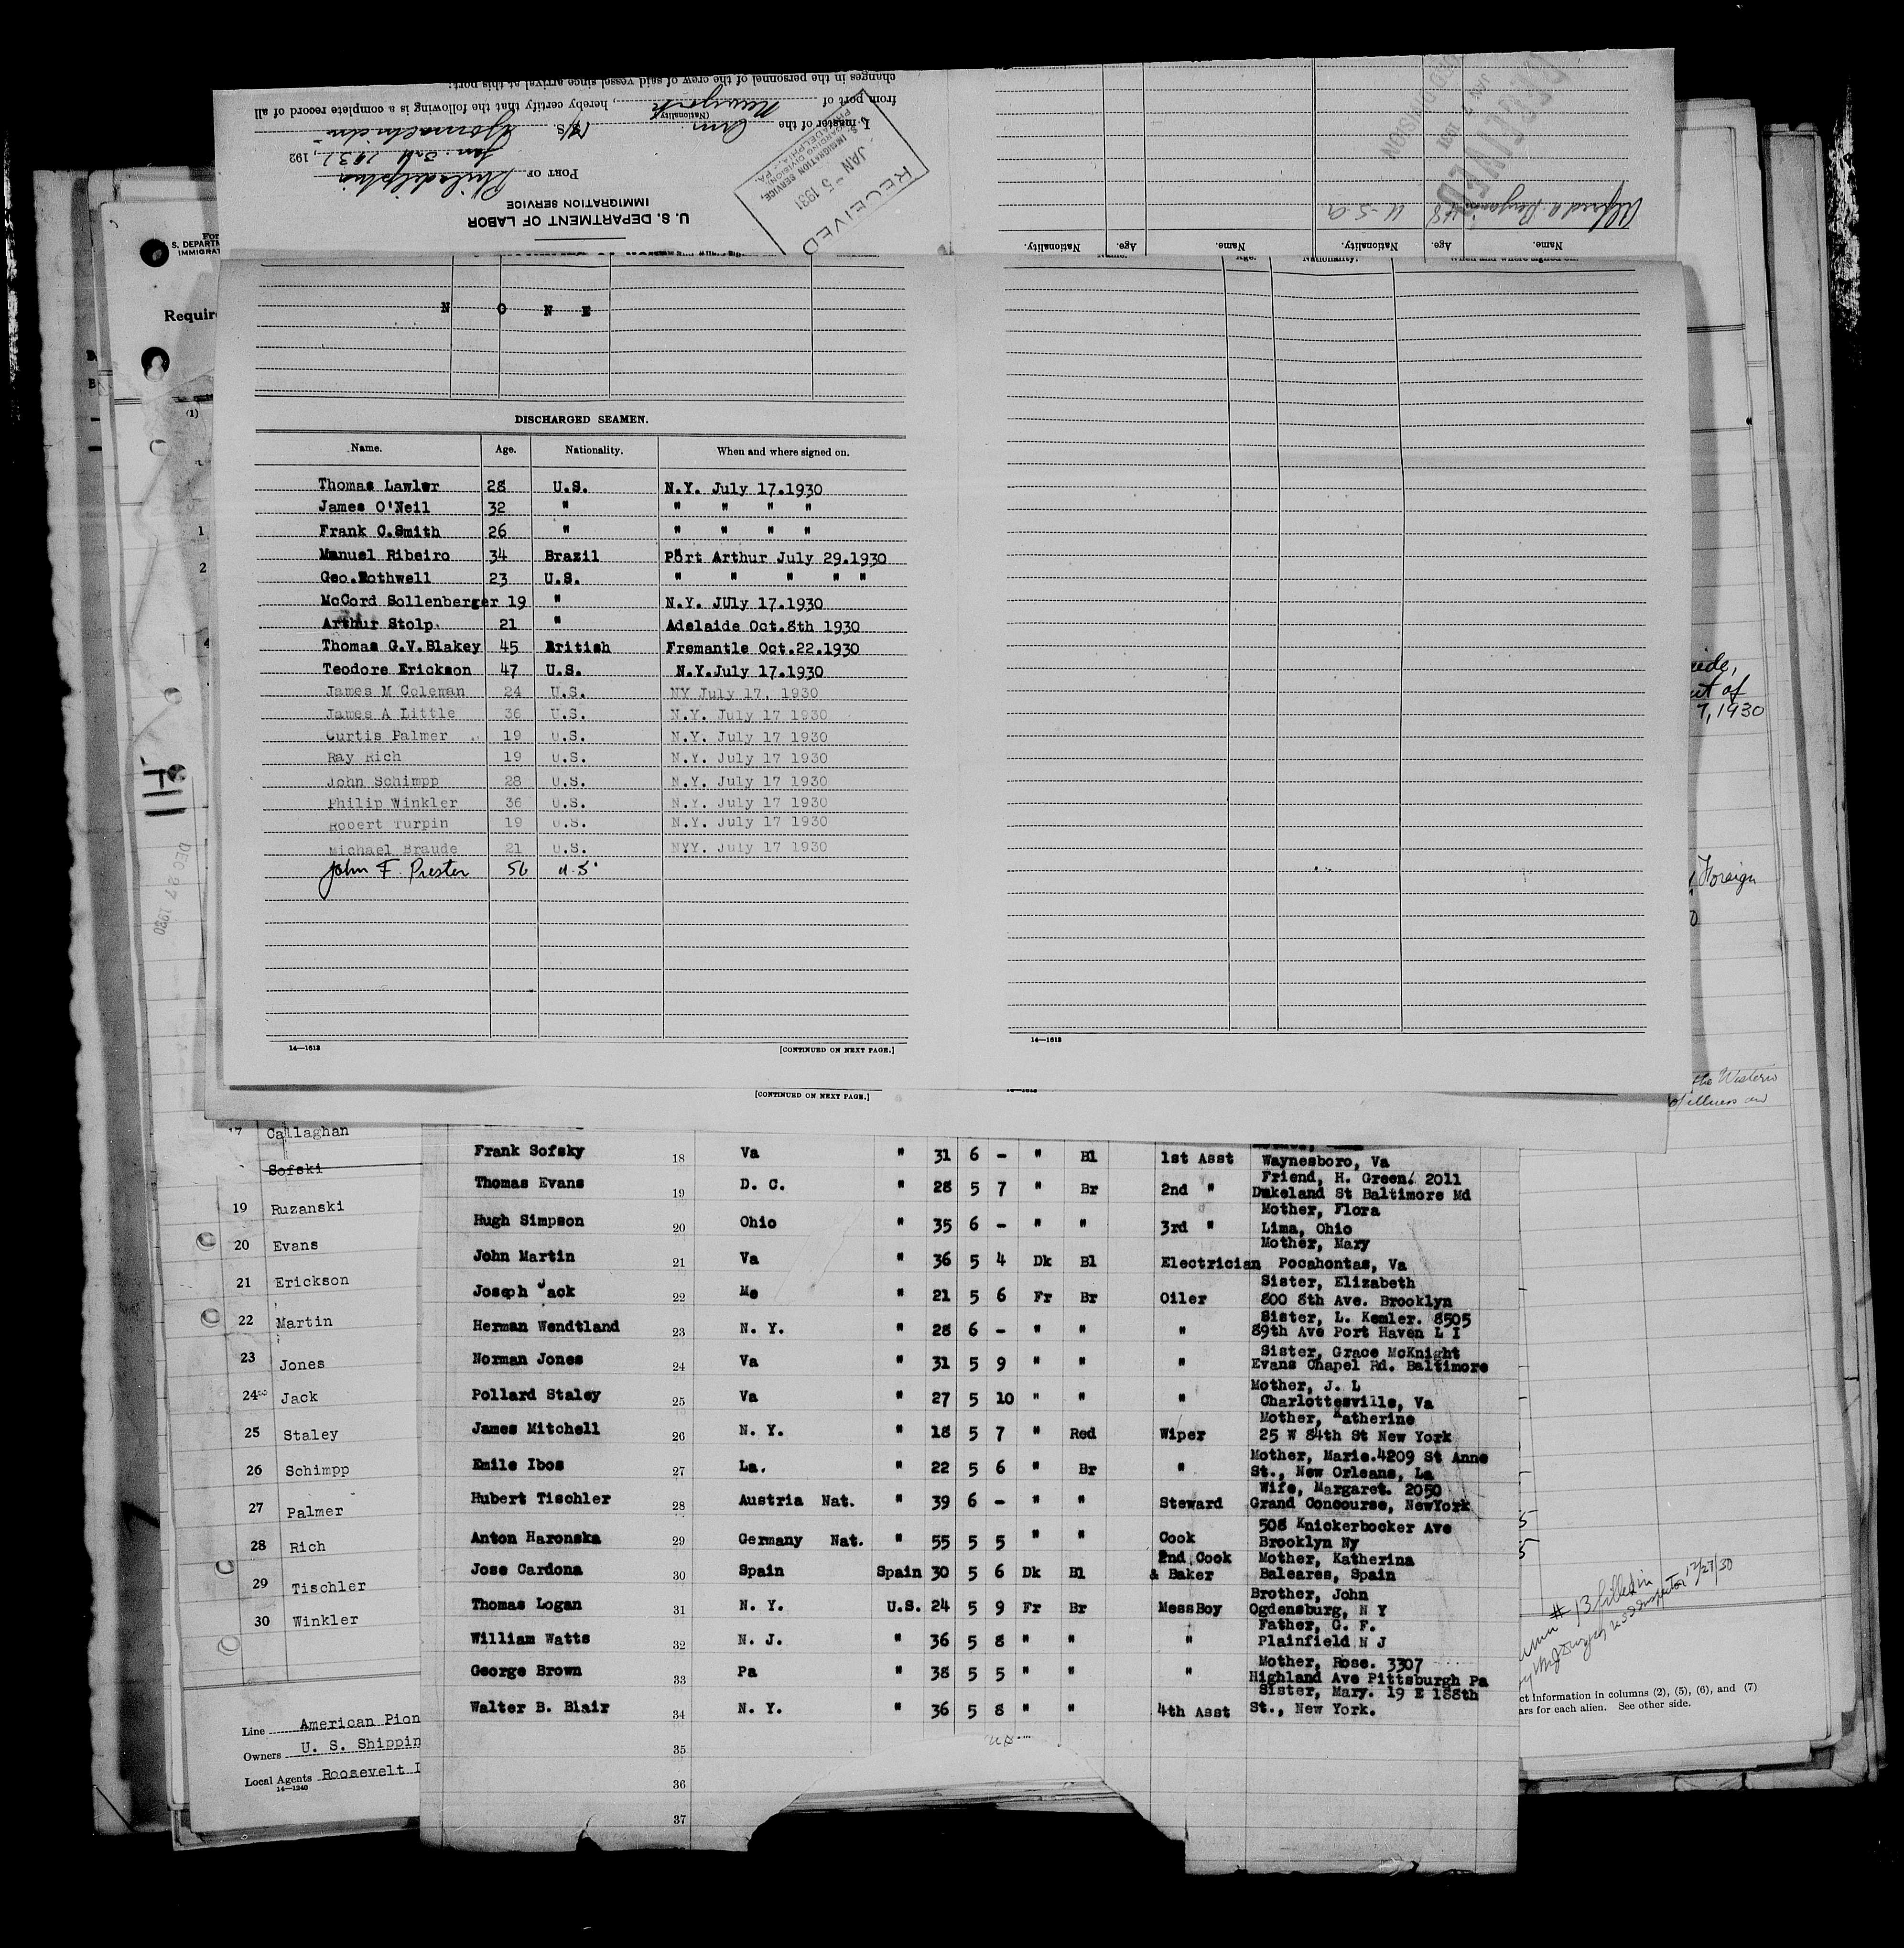 changes in the personnel of the crew of said vessel since arrival at this port:
from port of Newyork, hereby certify that the following is a complete record of all
(Nationality)
I, master of the Am S/S
Jan. 3rd 1931, 192
PORT OF Philadelphia
IMMIGRATION SERVICE
U. S. DEPARTMENT OF LABOR
RECEIVED
JAN - 5 1931
U.S. IMMIGRATION SERVICE,
DIVISION,
PHILADELPHIA, PA.
RECEIVED
1931
DIVISION
Alfred A. Benjamin 48 U-S-A
Name. Age. Nationality. Name. Age. Nationality.
S. DEPARTM
IMMIGRAT
Requir
(1)
N O N E
DISCHARGED SEAMEN.
Name. Age. Nationality. When and where signed on.
Thomas Lawler 28 U.S. N.Y. July 17.1930
James O'Neil 32 " " " " "
Frank C.Smith 26 " " " " "
Manuel Ribeiro 34 Brazil Port Arthur July 29.1930
Geo.Rothwell 23 U.S. " " " " "
McCord Sollenberger 19 " N.Y. JUly 17.1930
Arthur Stolp. 21 " Adelaide Oct.8th 1930
Thomas G.V.Blakey 45 British Fremantle Oct.22.1930
Teodore Erickson 47 U.S. N.Y.July 17.1930
James M Coleman 24 U.S. NY July 17, 1930
James A Little 36 U.S. N.Y. July 17 1930
Curtis Palmer 19 U.S. N.Y. July 17 1930
Ray Rich 19 U.S. N.Y. July 17 1930
John Schimpp 28 U.S. N.Y. July 17 1930
Philip Winkler 36 U.S. N.Y. July 17 1930
Robert Turpin 19 U.S. N.Y. July 17 1930
Michael Braude 21 U.S. NYY. July 17 1930
John F. Prester 56 U.S.
14—1613 [CONTINUED ON NEXT PAGE.]
14—1613
[CONTINUED ON NEXT PAGE.]
DEC 27 1930
7, 1930
Foreign
the Western
of illness and
17 Callaghan
Sofski
19 Ruzanski
20 Evans
21 Erickson
22 Martin
23 Jones
24 Jack
25 Staley
26 Schimpp
27 Palmer
28 Rich
29 Tischler
30 Winkler
Line American Pion
Owners U. S. Shippin
Local Agents Roosevelt
14—1240
Frank Sofsky 18 Va " 31 6 - " Bl 1st Asst Waynesboro, Va
Friend, H. Green. 2011
Thomas Evans 19 D. C. " 28 5 7 " Br 2nd " Dukeland St Baltimore Md
Mother, Flora
Hugh Simpson 20 Ohio " 35 6 - " " 3rd " Lima, Ohio
Mother, Mary
John Martin 21 Va " 36 5 4 Dk Bl Electrician Pocahontas, Va
Sister, Elizabeth
Joseph Jack 22 Me " 21 5 6 Fr Br Oiler 800 8th Ave. Brooklyn
Sister, L. Kemler. 8505
Herman Wendtland 23 N. Y. " 28 6 - " " " 89th Ave Port Haven L I
Sister, Grace McKnight
Norman Jones 24 Va " 31 5 9 " " " Evans Chapel Rd. Baltimore
Mother, J. L
Pollard Staley 25 Va " 27 5 10 " " " Charlottesville, Va
Mother, Katherine
James Mitchell 26 N. Y. " 18 5 7 " Red Wiper 25 W 84th St New York
Mother, Marie.4209 St Anne
Emile Ibos 27 La. " 22 5 6 " Br " St., New Orleans, La
Wife, Margaret. 2050
Hubert Tischler 28 Austria Nat. " 39 6 - " " Steward Grand Concourse, NewYork
508 Knickerbocker Ave
Anton Haronska 29 Germany Nat. " 55 5 5 " " Cook Brooklyn Ny
2nd Cook Mother, Katherina
Jose Cardona 30 Spain Spain 30 5 6 Dk Bl & Baker Baleares, Spain
Brother, John
Thomas Logan 31 N. Y. U.S. 24 5 9 Fr Br MessBoy Ogdensburg, N Y
Father, G. F.
William Watts 32 N. J. " 36 5 8 " " " Plainfield N J
Mother, Rose. 3307
George Brown 33 Pa " 38 5 5 " " " Highland Ave Pittsburgh Pa
Sister, Mary. 19 E 188th
Walter B. Blair 34 N. Y. " 36 5 8 " " 4th Asst St., New York.
35
36
37
# 13 filled in
12/27/30
ct Information in columns (2), (5), (6), and (7)
ars for each alien. See other side.